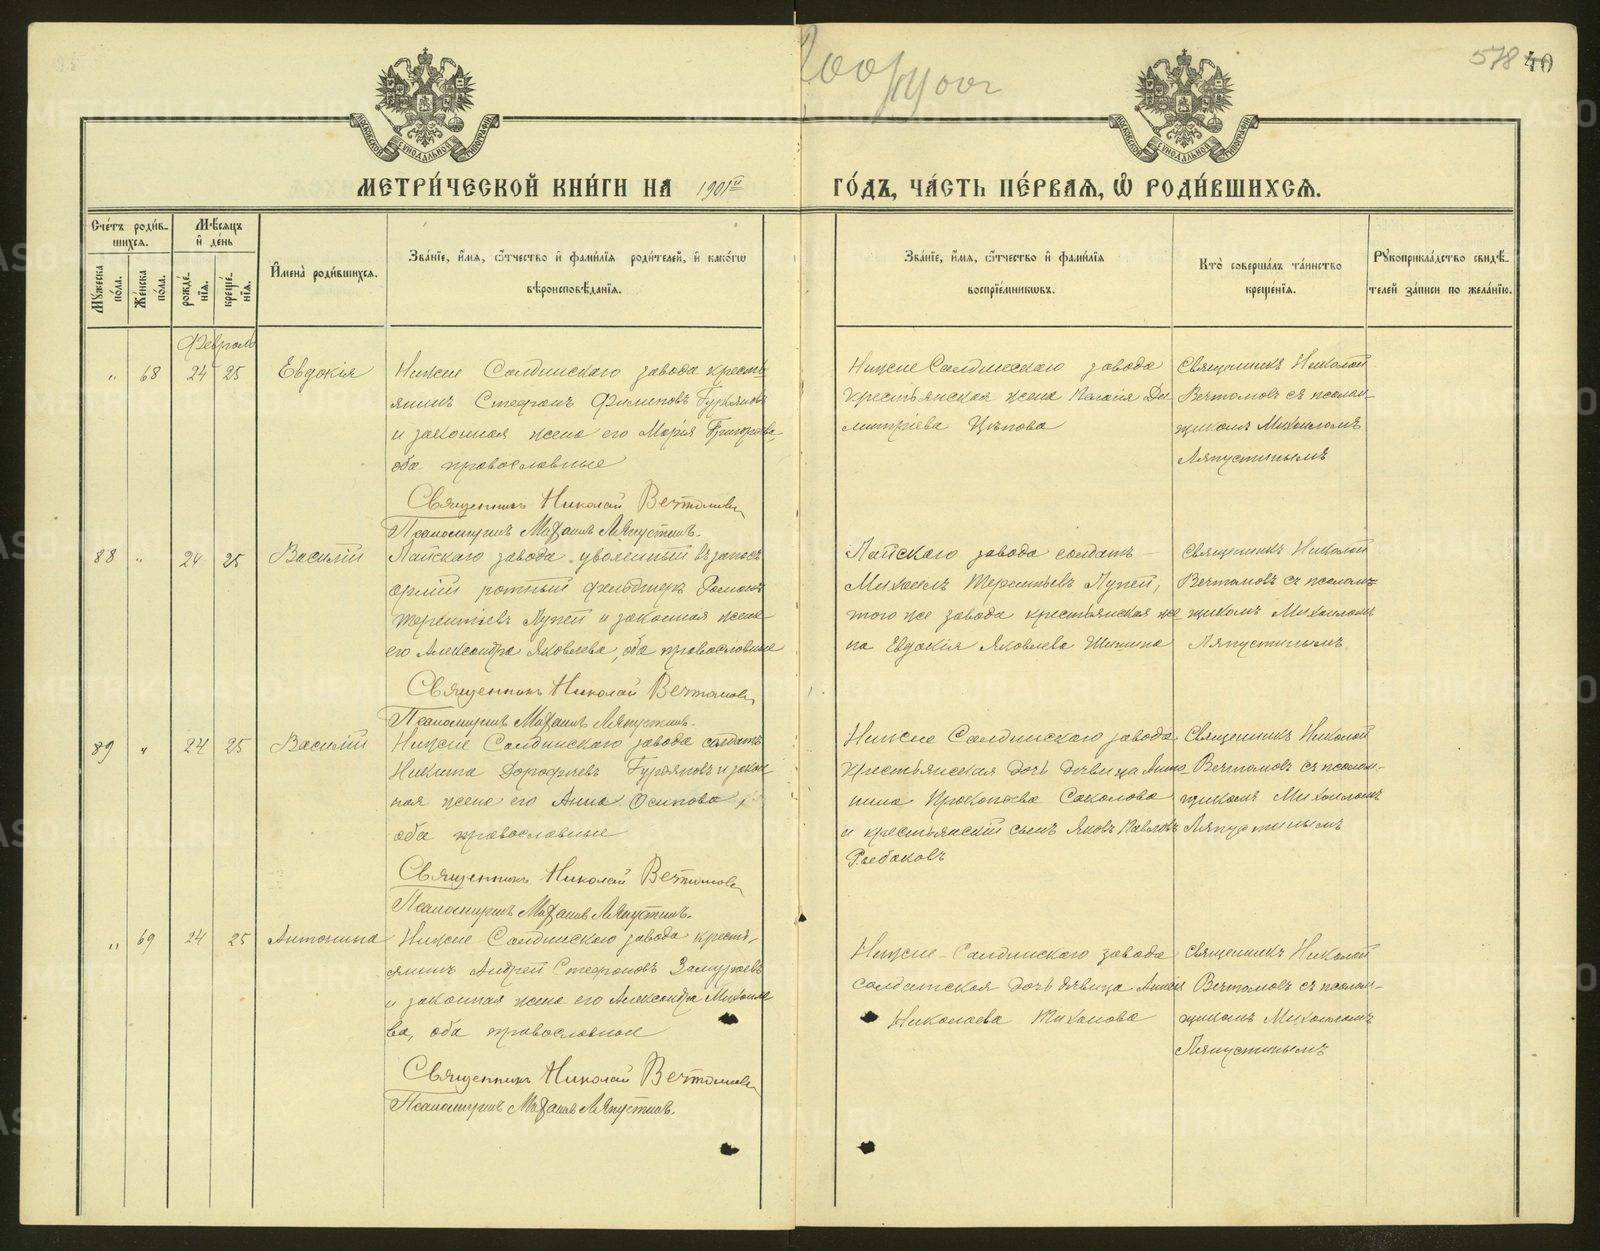 578 40
МЕТРИ́ЧЕСКОЙ КНИ́ГИ НА 1901й ГО́ДЪ, ЧА́СТЬ ПЕ́РВАѦ, Ѽ РОДИ́ВШИХСѦ.
Сче́тъ роди́вшихсѧ.
Мꙋ́жеска по́ла.
Же́нска по́ла.
Мѣ́сѧцъ и҆ де́нь
рожде́нїѧ.
креще́нїѧ.
И҆мена̀ роди́вшихсѧ.
Зва́нїе, и҆́мѧ, ѻ҆́тчество и҆ фами́лїѧ роди́телей, и҆ како́гѡ
вѣроисповѣ́данїѧ.
Зва́нїе, и҆́мѧ, ѻ҆́тчество и҆ фами́лїѧ
воспрїе́мникѡвъ.
Кто̀ соверша́лъ та́инство
креще́нїѧ.
Рꙋкоприкла́дство свидѣ́-
телей за́писи по жела́нїю.
Февраль
" 68 24 25 Евдокія
Нижне Салдинскаго завода кресть
янинъ Стефанъ Филиповъ
и законная жена его Марія Григорьева
оба православные
Священникъ Николай Вечтомовъ
Псаломщикъ Михаилъ Ляпустинъ.
Нижне Салдинскаго завода
крестьянская жена Ди
митріева Цѣпова
Священникъ Николай
Вечтомовъ съ псалом-
щикомъ Михаиломъ
Ляпустинымъ
88 " 24 25 Василій
Лайскаго завода уволенный въ запасъ
арміи ротный фельдшеръ Романъ
Терентьевъ Лупей и законная жена
его Александра Яковлева, оба православные
Священникъ Николай Вечтомовъ
Псаломщикъ Михаилъ Ляпустинъ.
Лайскаго завода солдатъ
Михаилъ Терентьевъ Лупей,
того же завода крестьянская же
на Евдокія Яковлева
Священникъ Николай
Вечтомовъ съ псалом-
щикомъ Михаиломъ
Ляпустинымъ
89 " 24 25 Василій
Нижне Салдинскаго завода солдатъ
Никита Дорофеевъ Гурьяновъ и закон
ная жена его Анна Осипова
оба православные
Священникъ Николай Вечтомовъ
Псаломщикъ Михаилъ Ляпустинъ.
Нижне Салдинскаго завода
крестьянская дочь дѣвица Анто
нина Прокопьева Соколова
и крестьянскій сынъ Яковъ Павловъ
Рыбаковъ
Священникъ Николай
Вечтомовъ съ псалом-
щикомъ Михаиломъ
Ляпустинымъ
" 69 24 25 Антонина
Нижне Салдинскаго завода кресть-
янинъ Андрей Стефановъ Замураевъ
и законная жена его Александра Михаиле
ва, оба православные
Священникъ Николай Вечтомовъ
Псаломщикъ Михаилъ Ляпустинъ.
Нижне-Салдинскаго завода
солдатская дочь дѣвица
Николаева Тиханова
Священникъ Николай
Вечтомовъ съ псалом-
щикомъ Михаиломъ
Ляпустинымъ